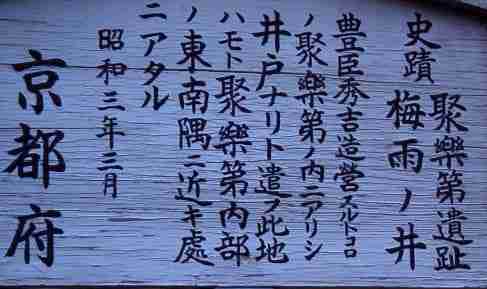 史蹟
聚樂第遺址
梅雨ノ井
豊臣秀吉造営スルトコロ
ノ聚樂第ノ内ニアリシ
井戸ナリト遺フ此地
ハモト聚樂第内部
ノ東南隅ニ近キ處
ニアタル
昭和三年三月
京都府